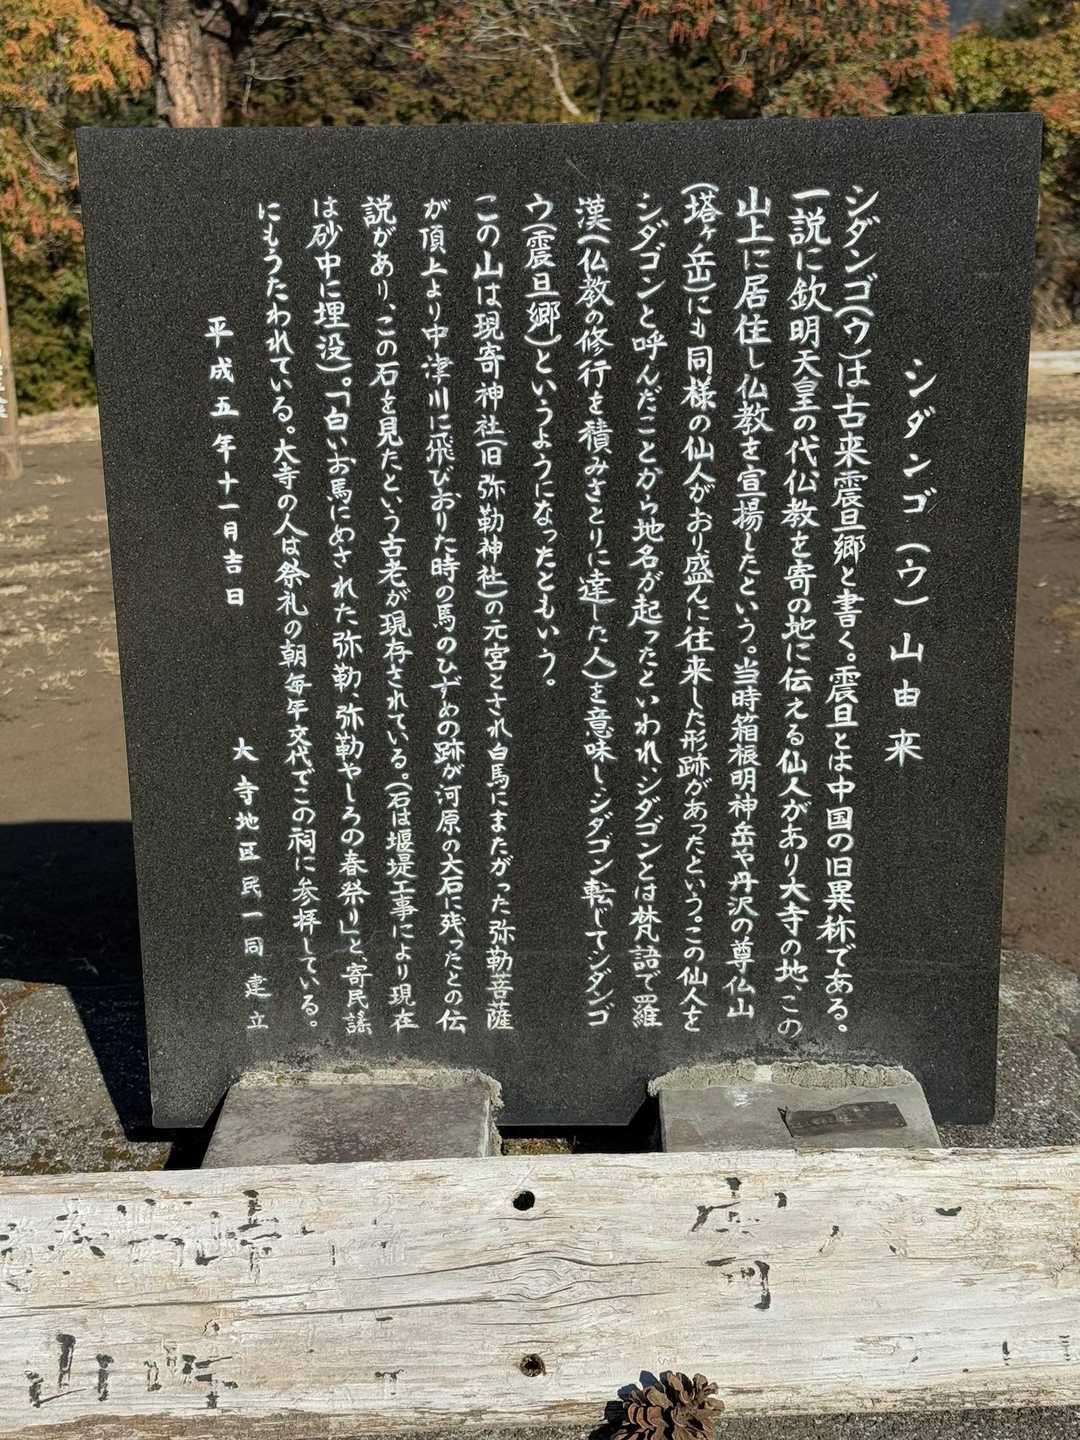 シダンゴ(ウ)山由来
シダンゴ(ウ)は古来震旦郷と書く。震旦とは中国の旧異称である。
一説に欽明天皇の代仏教を寄の地に伝える仙人があり大寺の地、この
山上に居住し仏教を宣揚したという。当時箱根明神岳や丹沢の尊仏山
(塔ヶ岳)にも同様の仙人がおり盛んに往来した形跡があったという。この仙人を
シダゴンと呼んだことから地名が起ったといわれ、シダゴンとは梵語で羅
漢(仏教の修行を積みさとりに達した人)を意味し、シダゴン転じてシダンゴ
ウ(震旦郷)というようになったともいう。
この山は現寄神社(旧弥勒神社)の元宮とされ白馬にまたがった弥勒菩薩
が頂上より中津川に飛びおりた時の馬のひずめの跡が河原の大石に残ったとの伝
説があり、この石を見たという古老が現存されている。(石は堰堤工事により現在
は砂中に埋没)。「白いお馬にめされた弥勒、弥勒やしろの春祭り」と、寄民謡
にもうたわれている。大寺の人は祭礼の朝毎年交代でこの祠に参拝している。
平成五年十一月吉日
大寺地区民一同建立